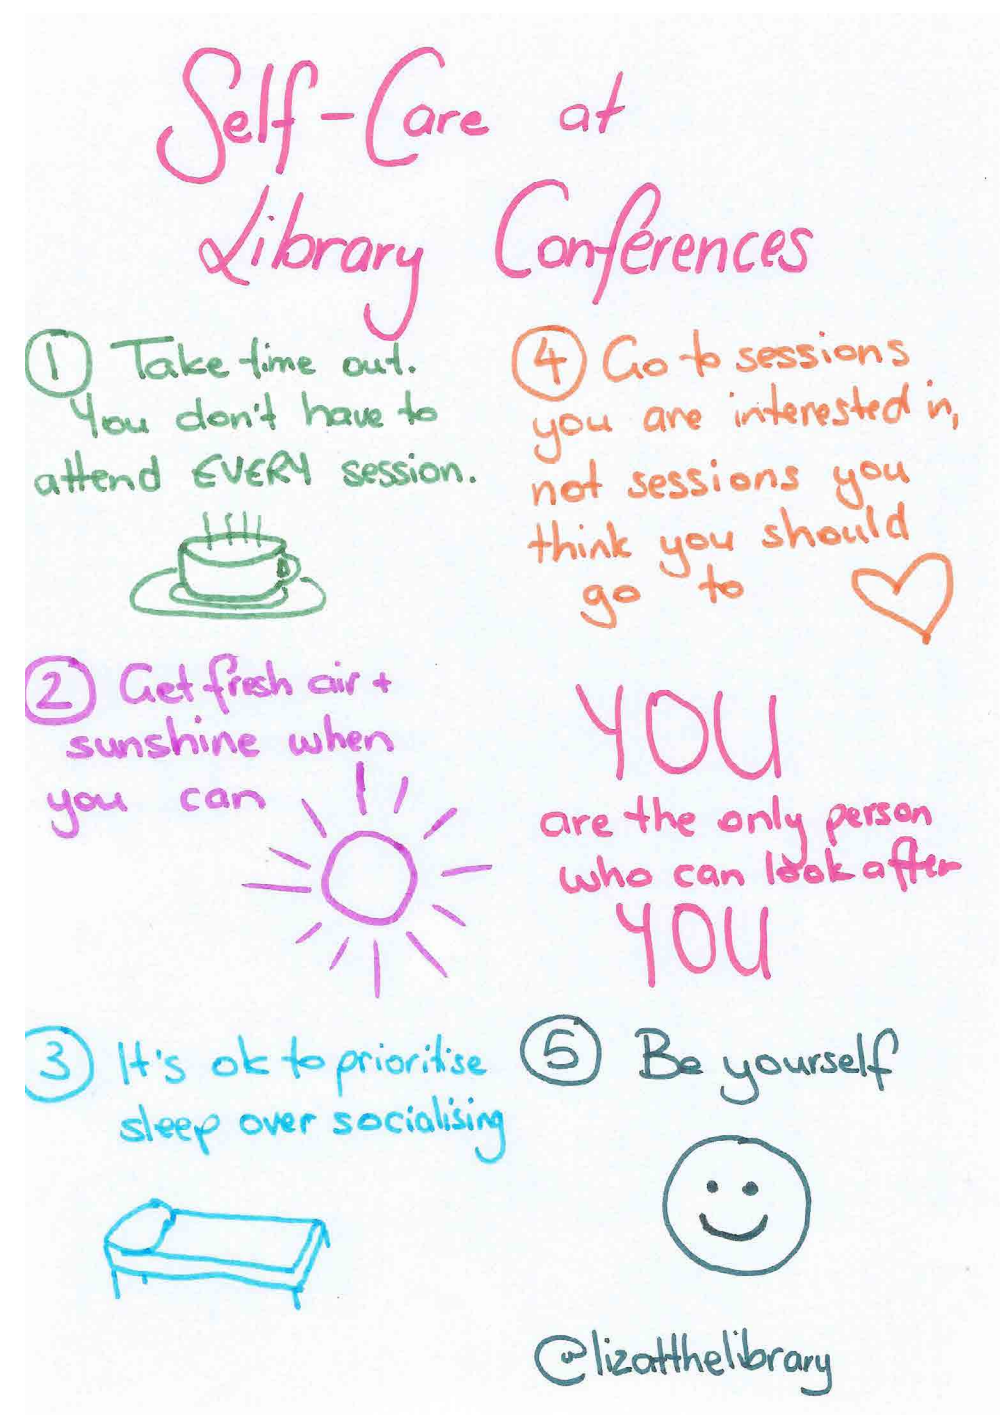 Self-Care at
Library Conferences
1 Take time out.
You don't have to
attend EVERY session.
2 Get fresh air +
sunshine when
you can
3 It's ok to prioritise
sleep over socialising
4 Go to sessions
you are interested in,
not sessions you
think you should
go to
YOU
are the only person
who can look after
YOU
5 Be yourself
@lizatthelibrary